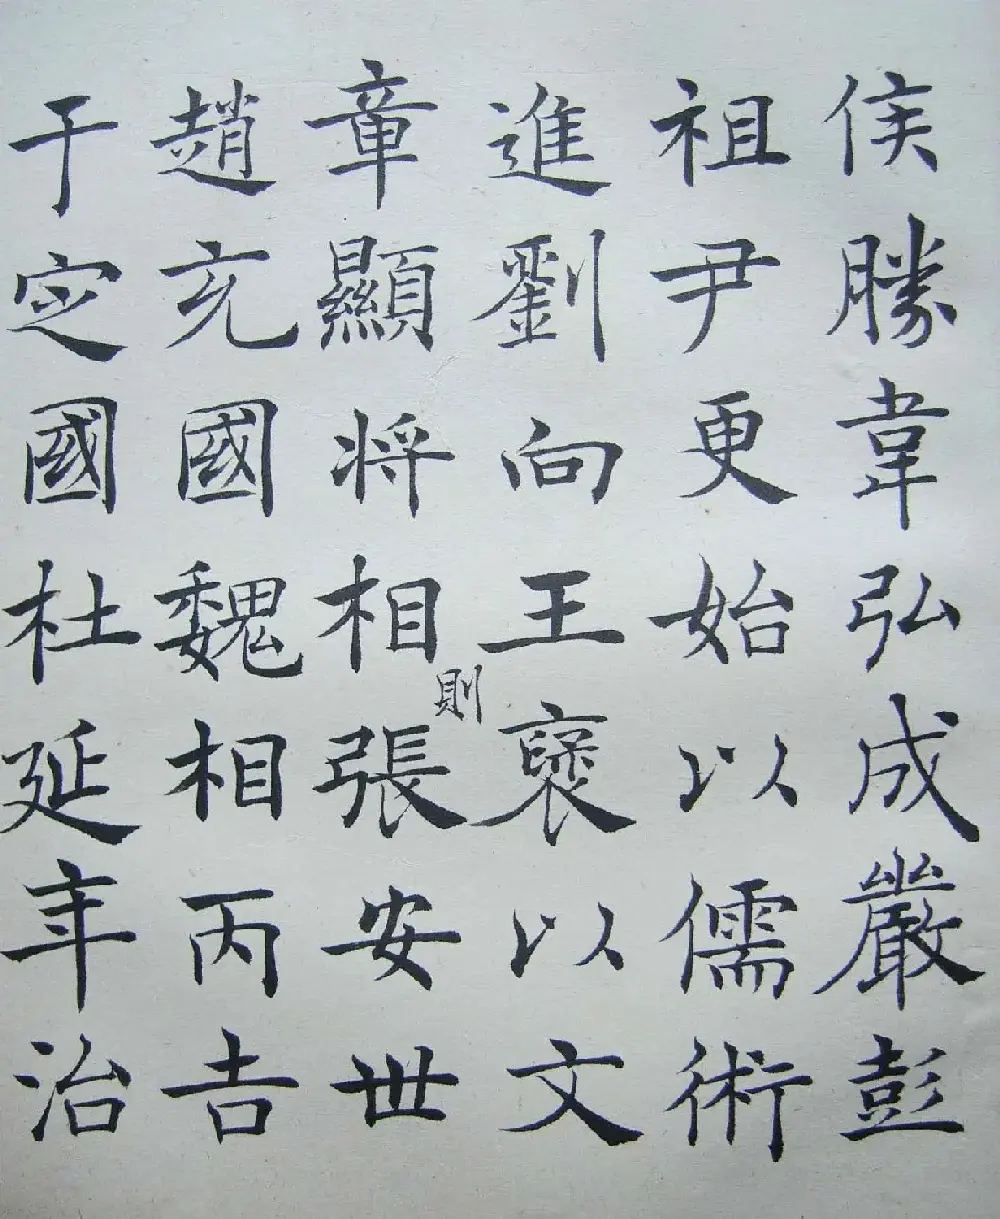 侯勝韋弘成嚴彭
祖尹更始以儒術
進劉向王褒以文
章顯將相則張安世
趙充國魏相丙吉
于定國杜延年治